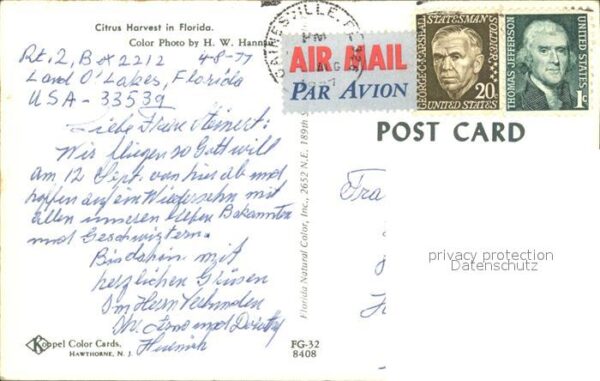 Citrus Harvest in Florida.
Color Photo by H. W. Hannau
Rt. 2, Box 2212 4-8-77
Land O'Lakes, Florida
USA - 33539
Liebe Frau Steinert:
Wir fliegen so Gott will
am 12 Sept. von hier ab und
hoffen auf ein Wiedersehn mit
allen unseren lieben Bekannten
und Geschwistern.
Bis dahin mit
herzlichen Grüssen
Im Herrn Verbunden
Ihr. Arno und Dorothy
Koppel Color Cards.
HAWTHORNE, N. J.
FG-32
8408
Florida Natural Color, Inc., 2652 N.E. 189th S
GAINESVILLE, F
PM
AUG
AIR MAIL
PAR AVION
GEORGE C. MARSHALL
STATESMAN
SOLDIER
20c
UNITED STATES
THOMAS JEFFERSON
UNITED STATES
1c
POST CARD
Fra
privacy protection
Datenschutz